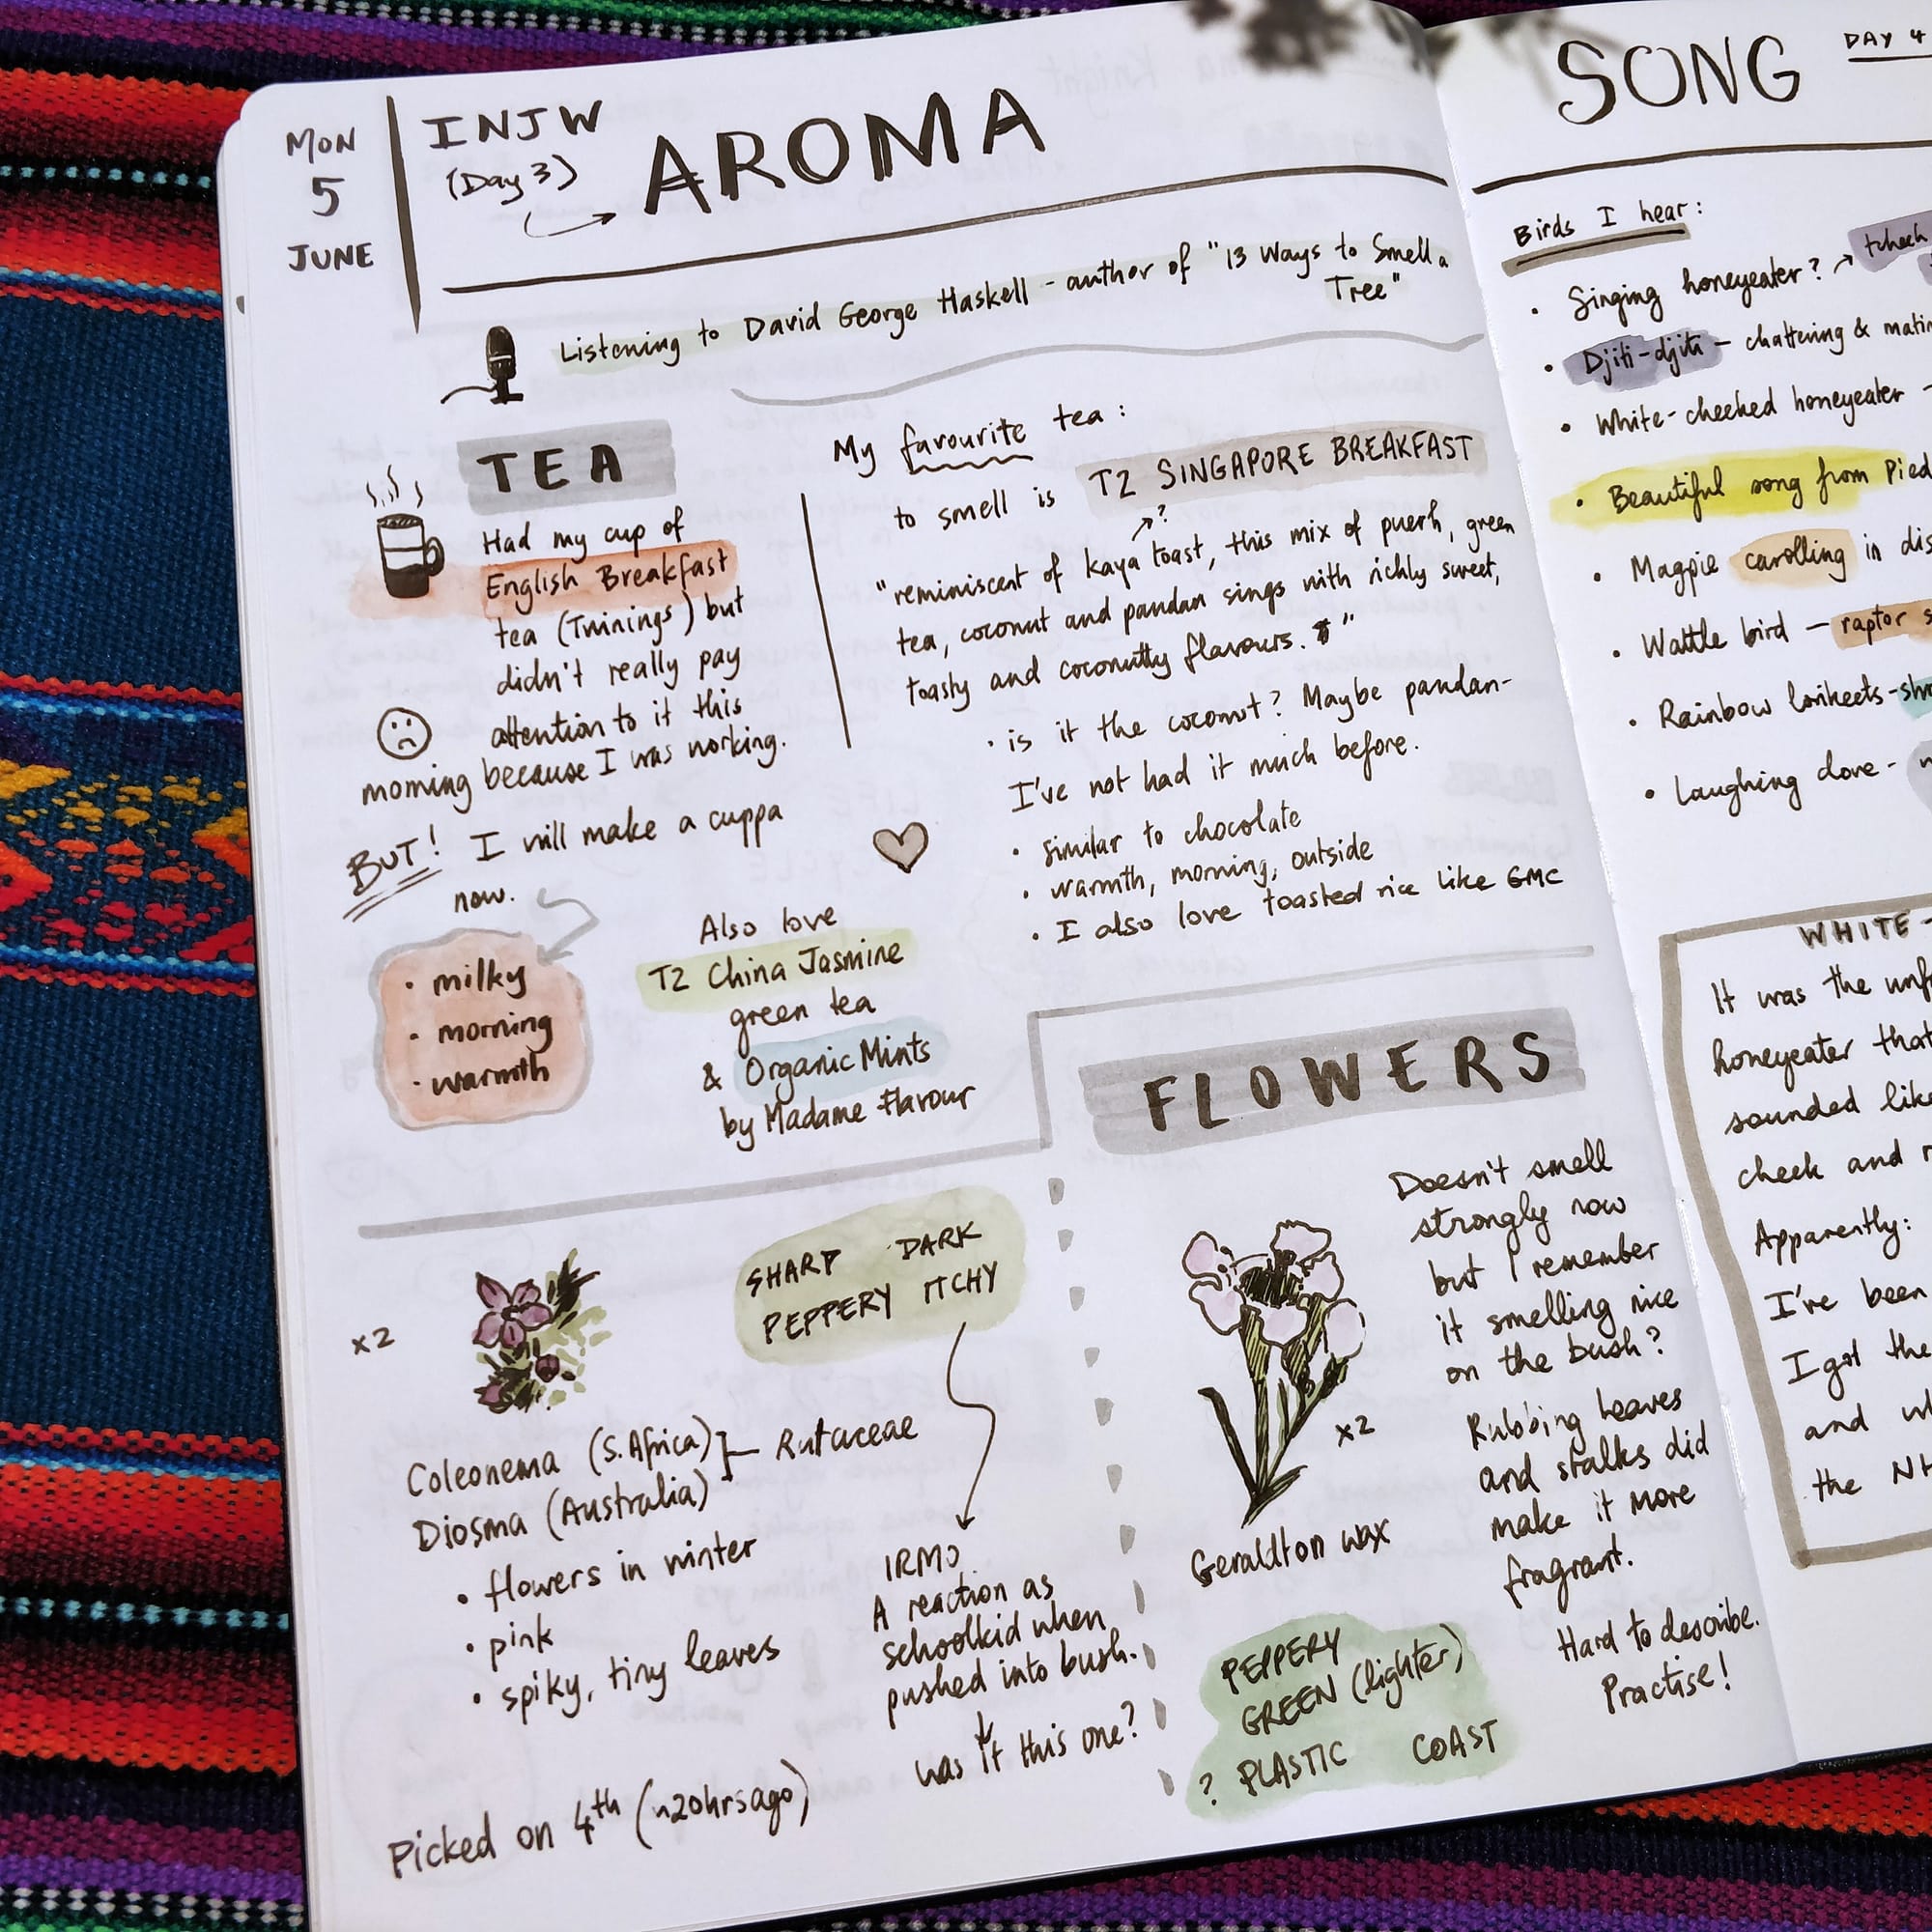 MON
5
JUNE
INJW
(Day 3)
AROMA
Listening to David George Haskell - author of "13 Ways to Smell a
Tree"
TEA
Had my cup of
English Breakfast
tea (Twinings) but
didn't really pay
attention to it this
morning because I was working.
BUT! I will make a cuppa
now.
• milky
• morning
• warmth
My favourite tea:
to smell is T2 SINGAPORE BREAKFAST
?
"reminiscent of kaya toast, this mix of puerh, green
tea, coconut and pandan sings with richly sweet,
toasty and coconutty flavours."
• is it the coconut? Maybe pandan-
I've not had it much before.
• similar to chocolate
• warmth, morning, outside
• I also love toasted rice like GMC
Also love
T2 China Jasmine
green tea
& Organic Mints
by Madame Flavour
FLOWERS
x2
SHARP DARK
PEPPERY ITCHY
Coleonema (S. Africa)
Diosma (Australia)
Rutaceae
• flowers in winter
• pink
• spiky, tiny leaves
IRMO
A reaction as
schoolkid when
pushed into bush.
was it this one?
Picked on 4th (~20hrs ago)
x2
Geraldton wax
Doesn't smell
strongly now
but I remember
it smelling nice
on the bush?
Rubbing leaves
and stalks did
make it more
fragrant.
Hard to describe.
Practise!
PEPPERY
GREEN (lighter)
? PLASTIC COAST
SONG
DAY 4
Birds I hear:
• Singing honeyeater? → tcheck
• Djiti-djiti - chattering &
• White-cheeked honeyeater -
• Beautiful song from Pied
• Magpie carolling in
• Wattle bird - raptor
• Rainbow lorikeets -
• Laughing dove -
WHITE-
It was the
honeyeater that
sounded like
cheek and
Apparently:
I've been
I got the
and
the